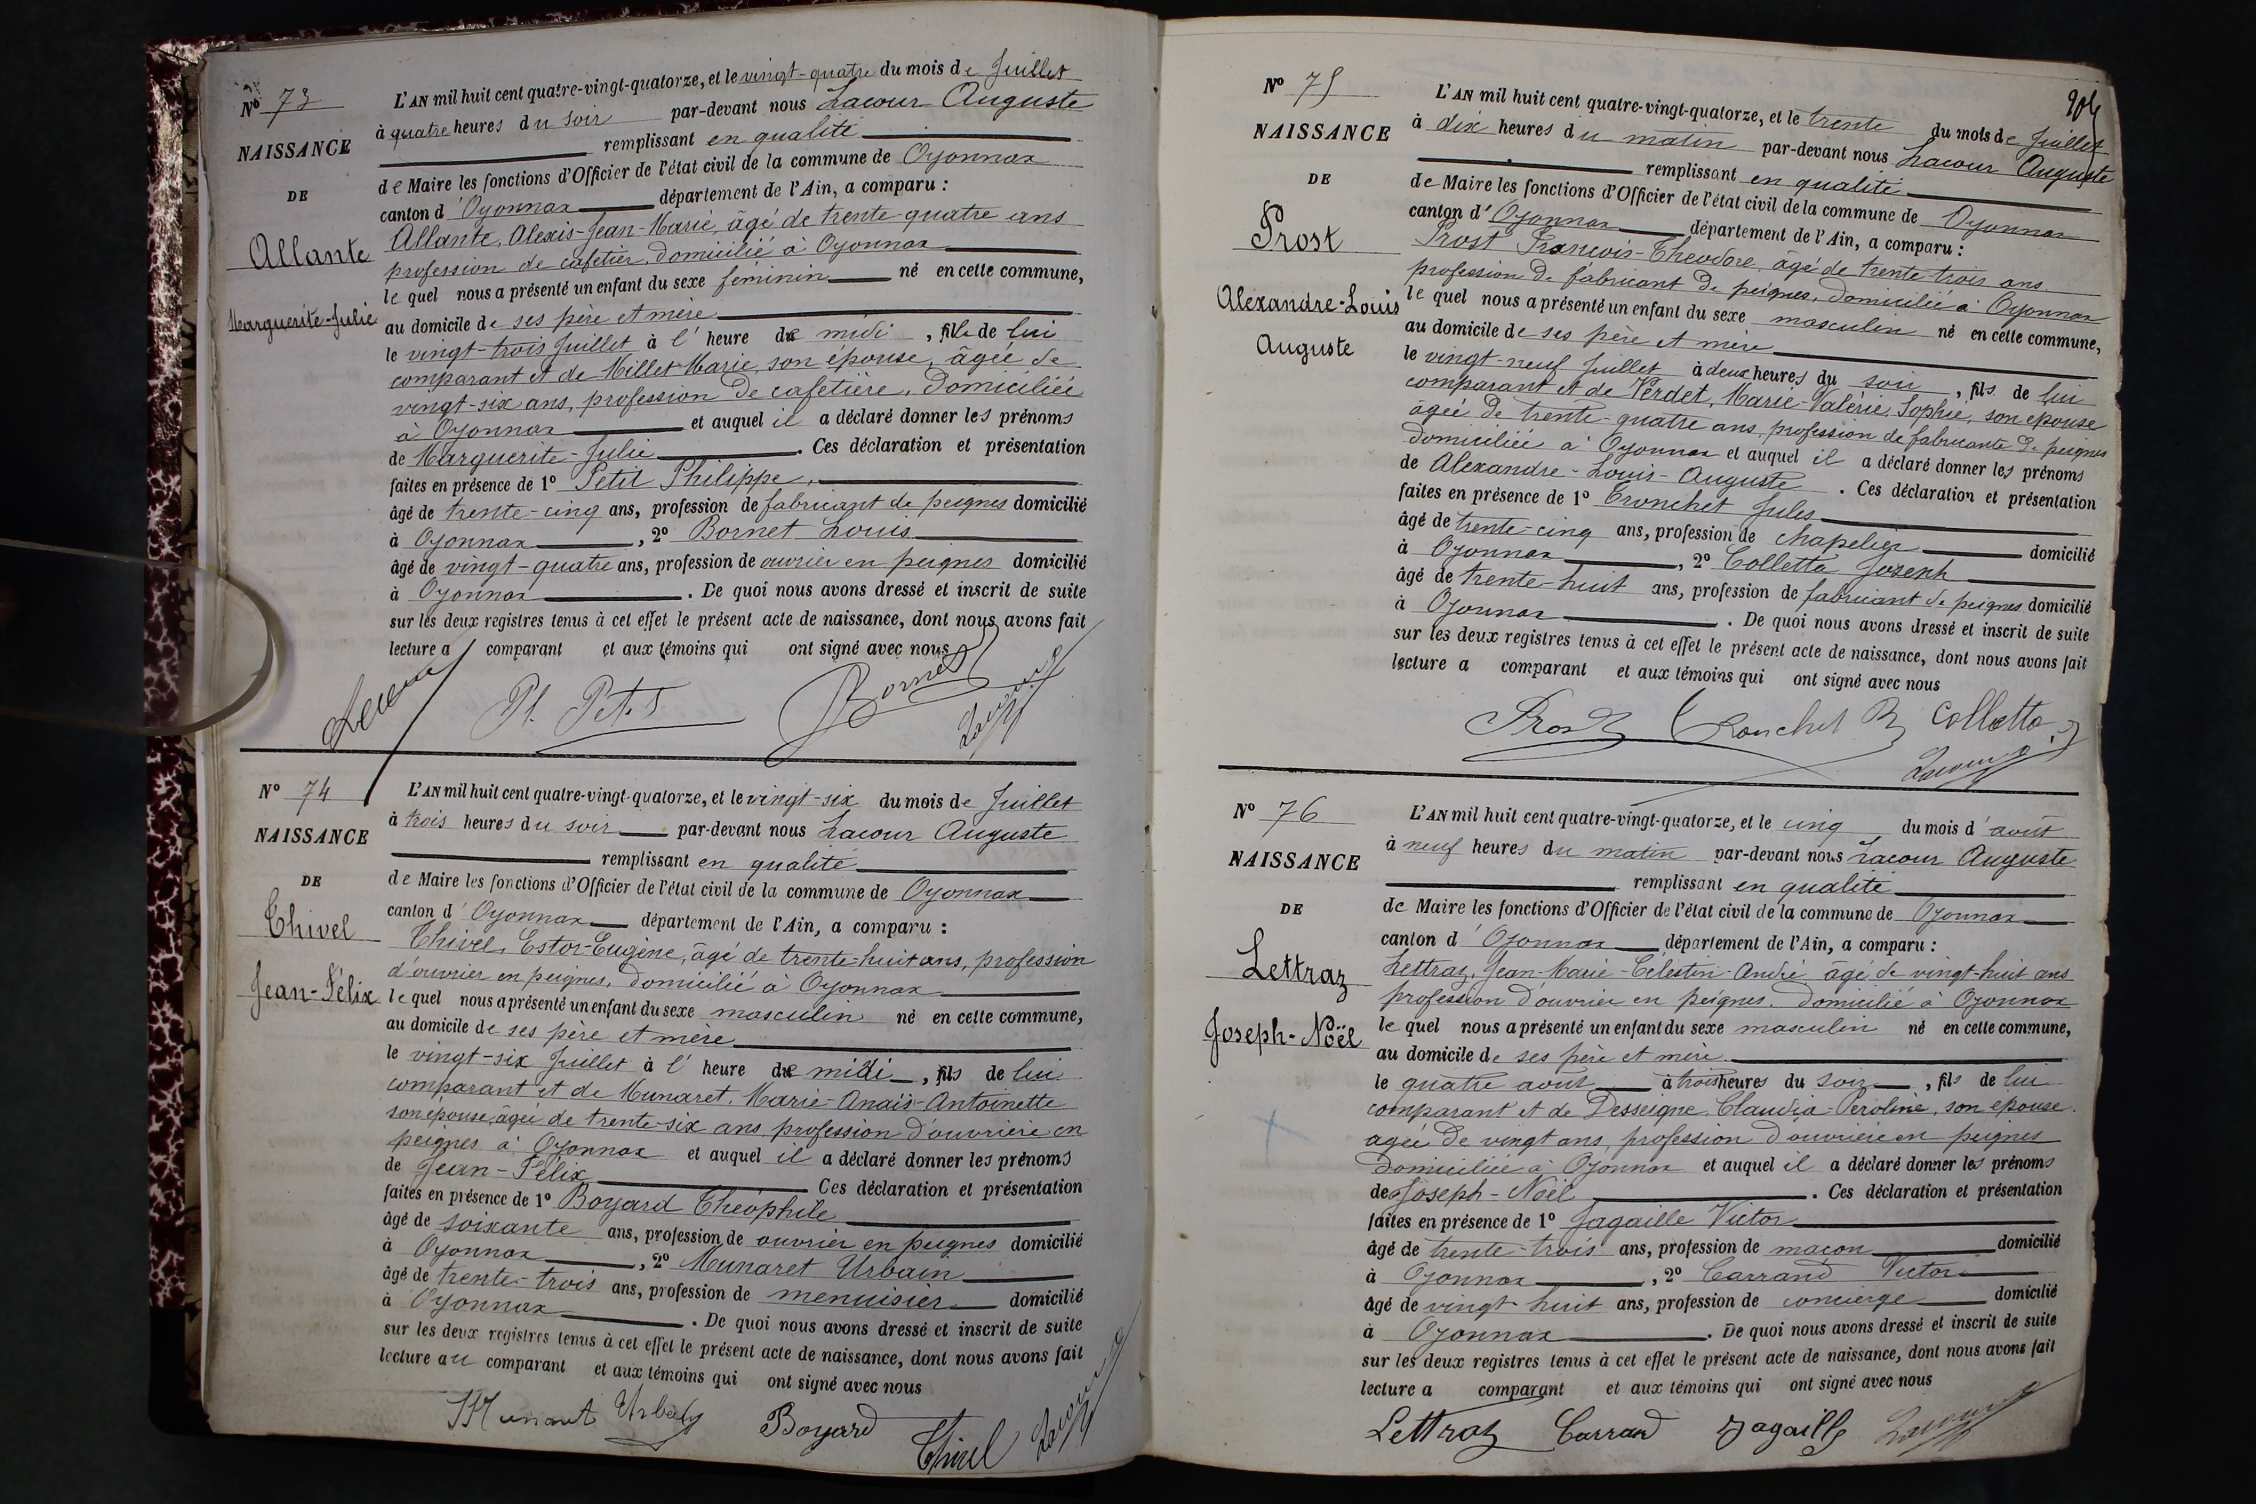 N° 73
NAISSANCE
DE
Allante
Marguerite-Julie
L'AN mil huit cent quatre-vingt-quatorze, et le vingt-quatre du mois de Juillet
à quatre heures du soir par-devant nous Lacour Auguste
remplissant en qualité
de Maire les fonctions d'Officier de l'état civil de la commune de Oyonnax
canton d'Oyonnax département de l'Ain, a comparu :
Allante, Alexis-Jean-Marie, âgé de trente-quatre ans
profession de cafetier, domicilié à Oyonnax
le quel nous a présenté un enfant du sexe féminin né en cette commune,
au domicile de ses père et mère
le vingt-trois Juillet à l'heure de midi, fille de lui
comparant et de Millet Marie, son épouse, âgée de
vingt-six ans, profession de cafetière, domiciliée
à Oyonnax et auquel il a déclaré donner les prénoms
de Marguerite-Julie. Ces déclaration et présentation
faites en présence de 1° Petit Philippe,
âgé de trente-cinq ans, profession de fabricant de peignes domicilié
à Oyonnax, 2° Bornet Louis
âgé de vingt-quatre ans, profession de ouvrier en peignes domicilié
à Oyonnax. De quoi nous avons dressé et inscrit de suite
sur les deux registres tenus à cet effet le présent acte de naissance, dont nous avons fait
lecture a comparant et aux témoins qui ont signé avec nous
Ph. Petit Bornet Lacour
N° 74
NAISSANCE
DE
Thivel
Jean-Félix
L'AN mil huit cent quatre-vingt-quatorze, et le vingt-six du mois de Juillet
à trois heures du soir par-devant nous Lacour Auguste
remplissant en qualité
de Maire les fonctions d'Officier de l'état civil de la commune de Oyonnax
canton d'Oyonnax département de l'Ain, a comparu :
Thivel, Estor-Eugène, âgé de trente-huit ans, profession
d'ouvrier en peignes, domicilié à Oyonnax
le quel nous a présenté un enfant du sexe masculin né en cette commune,
au domicile de ses père et mère
le vingt-six Juillet à l'heure de midi, fils de lui
comparant et de Munaret, Marie-Anaïs-Antoinette
son épouse, âgée de trente-six ans profession d'ouvrière en
peignes à Oyonnax et auquel il a déclaré donner les prénoms
de Jean-Félix Ces déclaration et présentation
faites en présence de 1° Boyard Théophile
âgé de soixante ans, profession de ouvrier en peignes domicilié
à Oyonnax, 2° Munaret Urbain
âgé de trente-trois ans, profession de menuisier domicilié
à Oyonnax. De quoi nous avons dressé et inscrit de suite
sur les deux registres tenus à cet effet le présent acte de naissance, dont nous avons fait
lecture au comparant et aux témoins qui ont signé avec nous
Munaret Urbain Boyard Thivel Lacour
N° 75
NAISSANCE
DE
Prost
Alexandre-Louis
Auguste
L'AN mil huit cent quatre-vingt-quatorze, et le trente du mois de Juillet
à dix heures du matin par-devant nous Lacour Auguste
remplissant en qualité
de Maire les fonctions d'Officier de l'état civil de la commune de Oyonnax
canton d'Oyonnax département de l'Ain, a comparu :
Prost François-Théodore, âgé de trente-trois ans
profession de fabricant de peignes, domicilié à Oyonnax
le quel nous a présenté un enfant du sexe masculin né en cette commune,
au domicile de ses père et mère
le vingt-neuf Juillet à deux heures du soir, fils de lui
comparant et de Verdet, Marie-Valérie, Sophie, son épouse
âgée de trente-quatre ans, profession de fabricante de peignes
domiciliée à Oyonnax et auquel il a déclaré donner les prénoms
de Alexandre-Louis-Auguste. Ces déclaration et présentation
faites en présence de 1° Tronchet Jules
âgé de trente-cinq ans, profession de chapelier domicilié
à Oyonnax, 2° Colletta Joseph
âgé de trente-huit ans, profession de fabricant de peignes domicilié
à Oyonnax. De quoi nous avons dressé et inscrit de suite
sur les deux registres tenus à cet effet le présent acte de naissance, dont nous avons fait
lecture a comparant et aux témoins qui ont signé avec nous
Prost Tronchet Colletta
Lacour
N° 76
NAISSANCE
DE
Lettraz
Joseph-Noël
L'AN mil huit cent quatre-vingt-quatorze, et le cinq du mois d'août
à neuf heures du matin par-devant nous Lacour Auguste
remplissant en qualité
de Maire les fonctions d'Officier de l'état civil de la commune de Oyonnax
canton d'Oyonnax département de l'Ain, a comparu :
Lettraz, Jean-Marie-Célestin-André âgé de vingt-huit ans
profession d'ouvrier en peignes, domicilié à Oyonnax
le quel nous a présenté un enfant du sexe masculin né en cette commune,
au domicile de ses père et mère
le quatre août à trois heures du soir, fils de lui
comparant et de Desseigne, Claudia-Péroline, son épouse
âgée de vingt ans, profession d'ouvrière en peignes
domiciliée à Oyonnax et auquel il a déclaré donner les prénoms
de Joseph-Noël. Ces déclaration et présentation
faites en présence de 1° Jagaille Victor
âgé de trente-trois ans, profession de maçon domicilié
à Oyonnax, 2° Carrand Victor
âgé de vingt huit ans, profession de concierge domicilié
à Oyonnax. De quoi nous avons dressé et inscrit de suite
sur les deux registres tenus à cet effet le présent acte de naissance, dont nous avons fait
lecture a comparant et aux témoins qui ont signé avec nous
Lettraz Carrand Jagaille Lacour